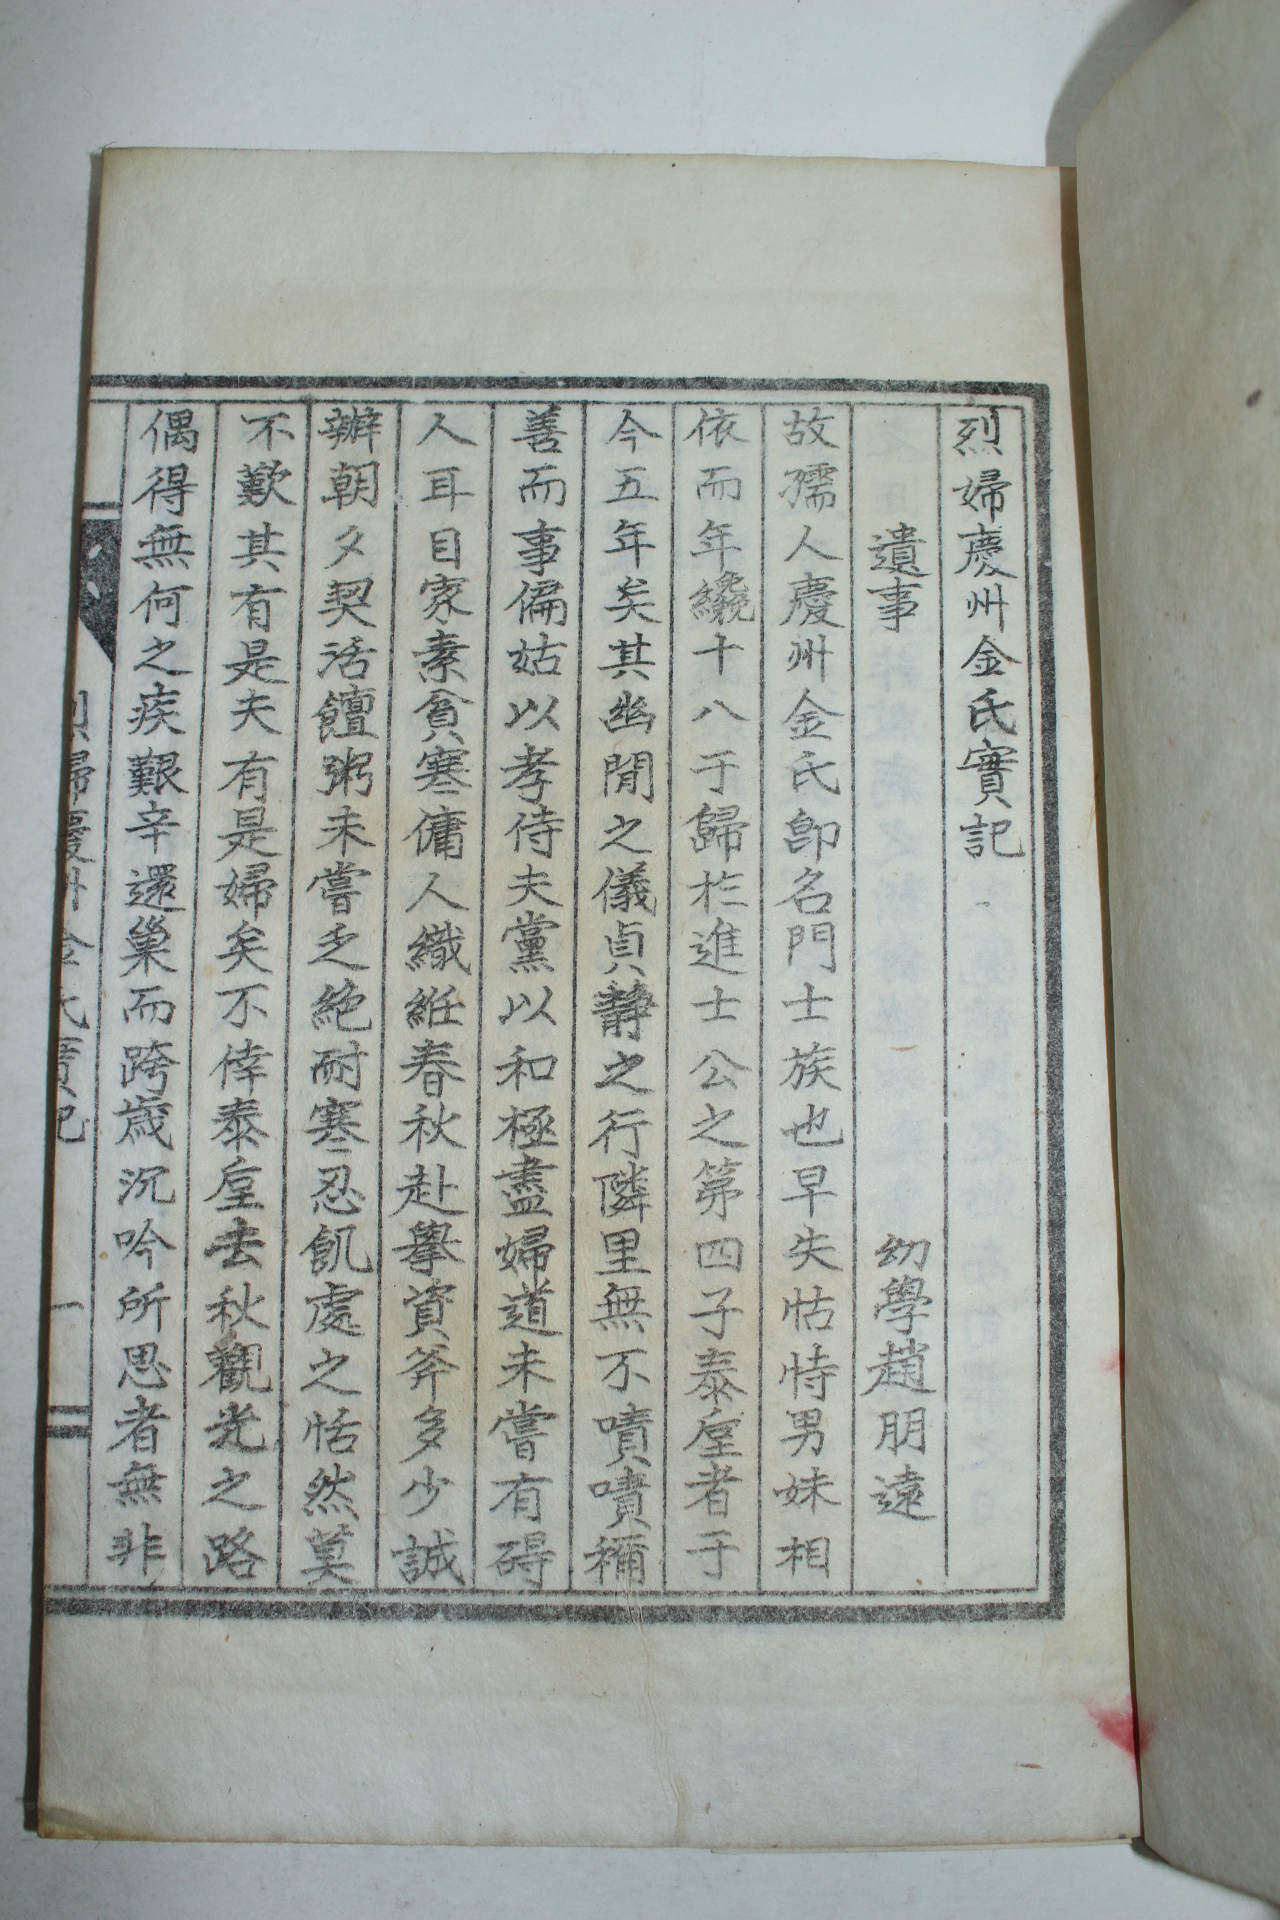 烈婦慶州金氏實記
遺事 幼學趙朋遠
故孺人慶州金氏卽名門士族也早失怙恃男妹相
依而年纔十八于歸於進士公之第四子泰垕者于
今五年矣其幽閒之儀貞靜之行隣里無不嘖嘖稱
善而事偏姑以孝侍夫黨以和極盡婦道未嘗有碍
人耳目家素貧寒傭人織絍春秋赴擧資斧多少誠
辦朝夕契活饘粥未嘗乏絶耐寒忍飢處之恬然莫
不歎其有是夫有是婦矣不倖泰垕去秋觀光之路
偶得無何之疾艱辛還巢而跨歲沉吟所思者無非
烈婦慶州金氏實記 一